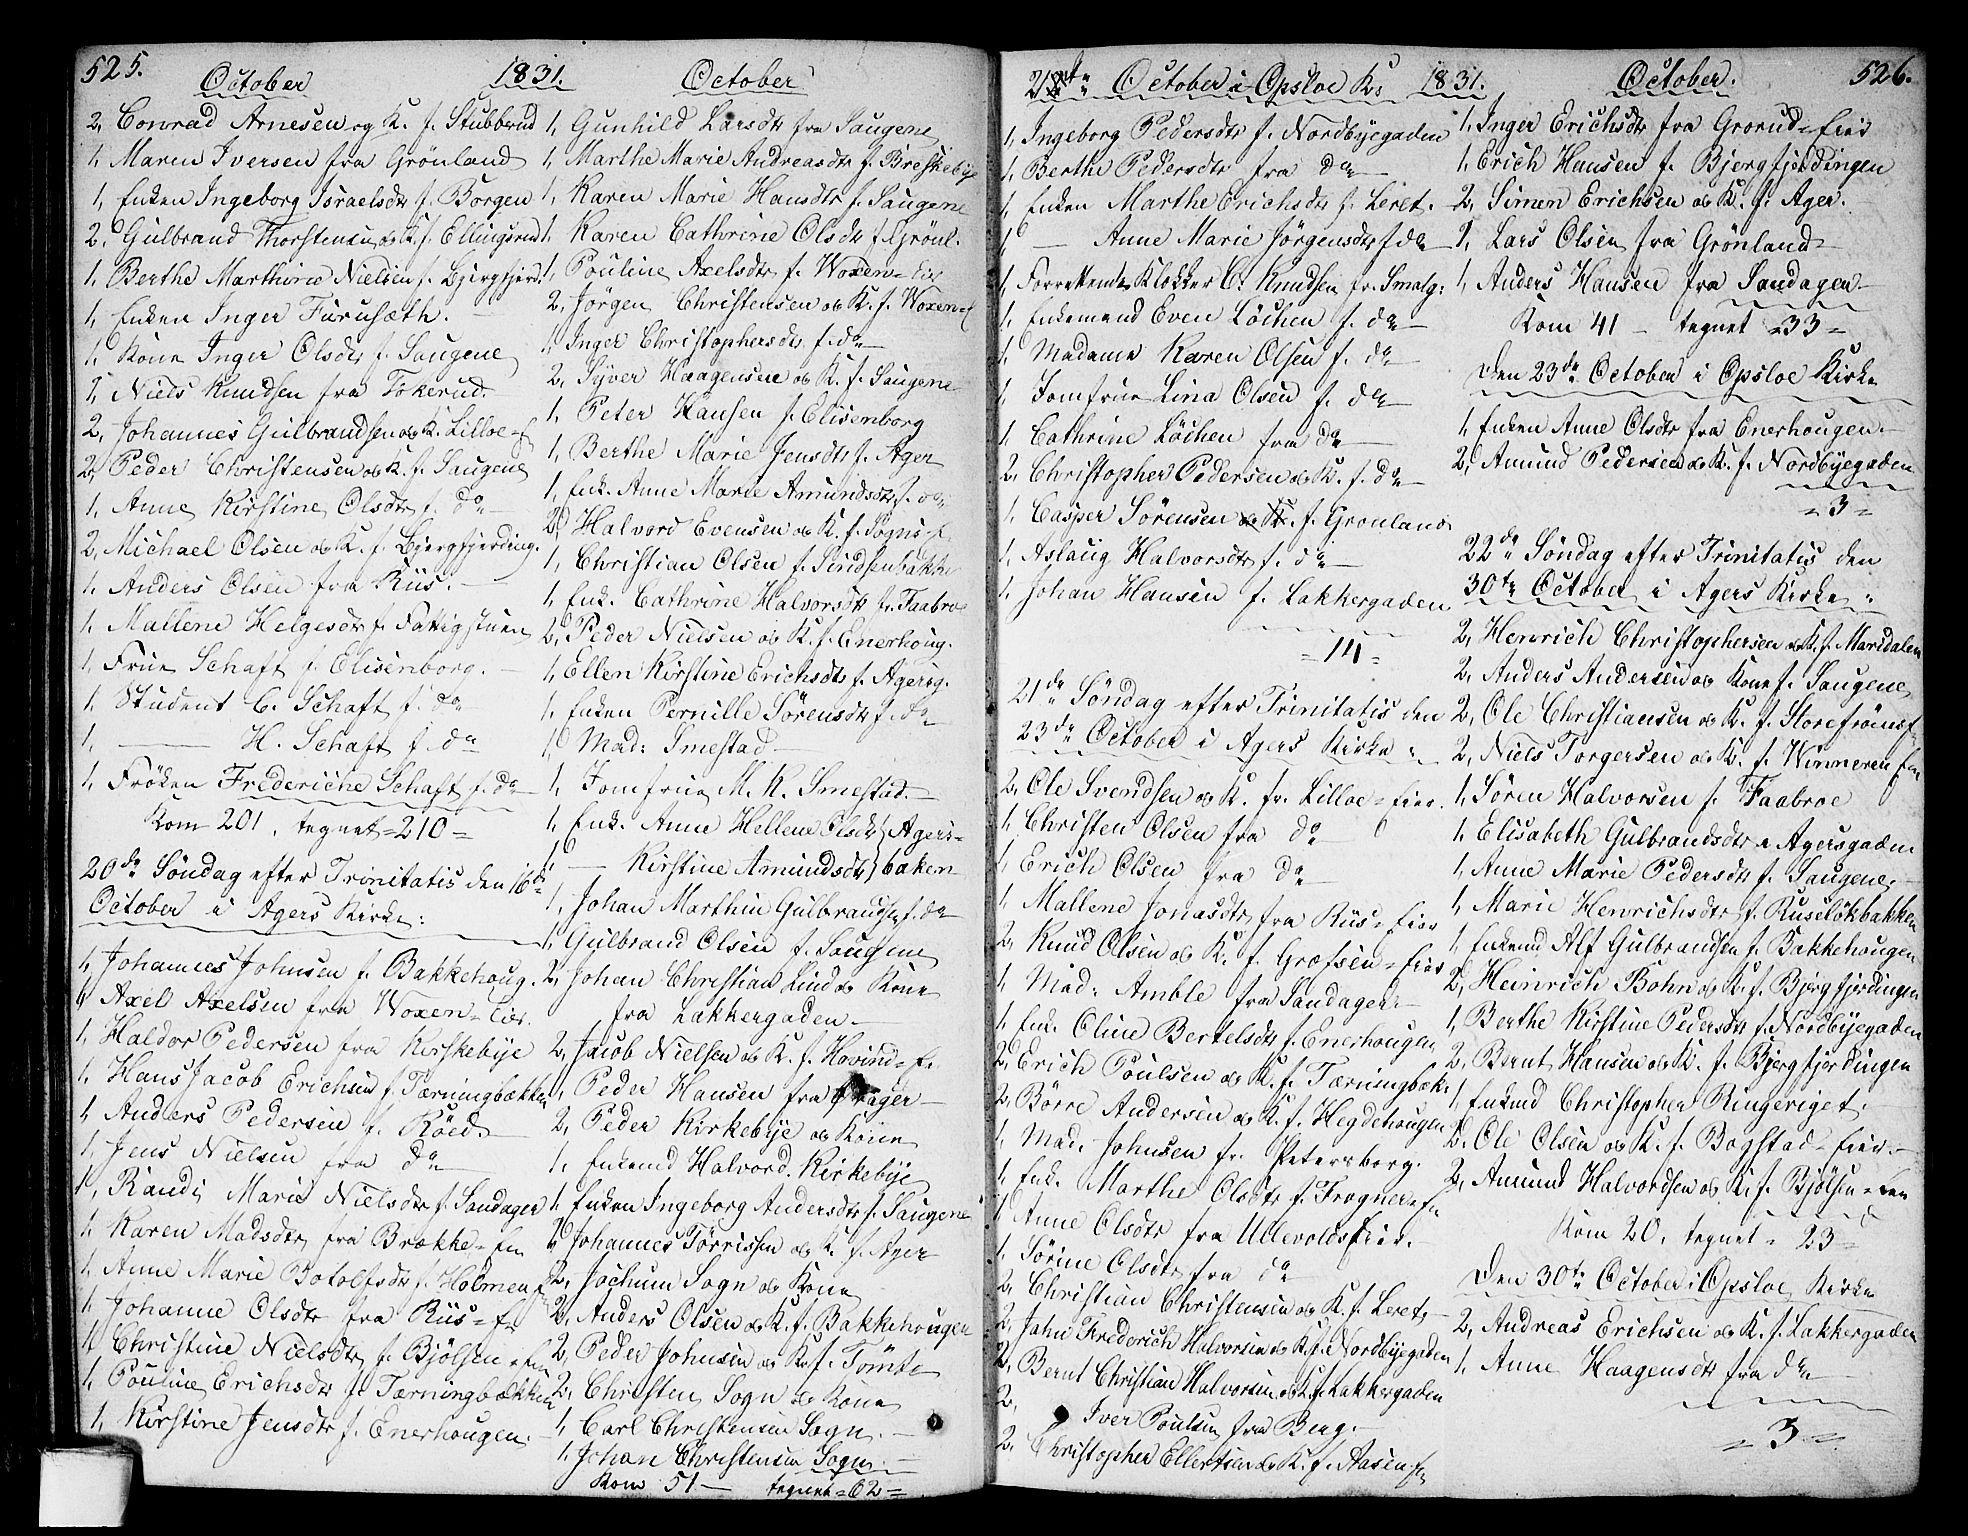 525.
October 1831. October
2, Conrad Arnesen og K. f. Stubberud
1, Maren Iversen fra Grönland
1, Enken Ingeborg Israelsdtr f. Borgen
2, Gulbrand Thorstensen og K. f. Ellingsrud
1, Berthe Marthine Nielsen f. Bjergfjerd.
1, Enken Inger Furusæth.
1, Kone Inger Olsdtr f. Saugene
1, Niels Knudsen fra Tokerud.
2, Johannes Gulbrandsen og K. Lilloe-E
2, Peder Christensen og K. f. Saugene
1, Anne Kirstine Olsdtr f. do
2, Michael Olsen og K. f. Bjergfjerding.
1, Anders Olsen fra Riis.
1, Mallene Helgesdtr f. Fattigstuen
1, Frue Schaft f. Elisenborg.
1, Student C. Schaft f. do
1, — H. Schaft f. do
1, Fröken Frederiche Schaft f. do
Kom 201, tegnet = 210 =
20de Söndag efter Trinitatis den 16de
October i Agers Kirke:
1, Johannes Johnsen f. Bakkehoug.
1, Axel Axelsen fra Woxen-Eier.
1, Haldor Pedersen fra Kirkebye
1, Hans Jacob Erichsen f. Tærningbækken
1, Anders Pedersen f. Röed
1, Jens Nielsen fra do
1, Randi Marie Nielsdtr f. Sandager
1, Karen Madsdtr fra Brække-En
1, Anne Marie Botolfsdtr f. Holmen
1, Johanne Olsdtr fra Riis-E
1, Christine Nielsdtr f. Bjölsen
1, Pouline Erichsdtr f. Tærningbækken
1, Kirstine Jensdtr f. Enerhougen.
1, Gunhild Larsdtr fra Saugene
1, Marthe Marie Andreasdtr f. Breskebye
1, Karen Marie Hansdtr f. Saugene
1, Karen Cathrine Olsdtr f. Grönl.
1, Pouline Axelsdtr f. Woxen-Eie
2, Jörgen Christensen og K. f. Woxen-E
1, Inger Christophersdtr f. do
2, Syver Haagensen og K. f. Saugene
1, Peter Hansen f. Elisenborg
1, Berthe Marie Jensdtr f. Ager
1, Enk. Anne Marie Amundsdtr f. do
2, Halvord Evensen og K. f. Sogns-E.
1, Christian Olsen f. Sindsenbakke
1, Enk. Cathrine Halvorsdtr fr. Faabroe
2, Peder Nielsen og K. f. Enerhoug.
1, Ellen Kirstine Erichsdtr f. Agersg.
1, Enken Pernille Sörensdtr f. do
1, Mad: Smestad
1, Jomfrue M. K. Smestad.
1, Enk. Anne Hellene Olsdtr } Agers-
1, — Kirstine Amundsdtr } baken
1, Johan Marthin Gulbrandsen f. do
1, Gulbrand Olsen f. Saugene
2, Johan Christian Lind og Kone
fra Lakkergaden
2, Jacob Nielsen og K. f. Hovind-E.
1, Peder Hansen fra Ager
2, Peder Kirkebye og Kone
1, Enkemd Halvord. Kirkebye
1, Enken Ingeborg Andersdtr f. Saugene
2, Johannes Törrissen og K. f. Ager
2, Jochum Sogn og Kone
2, Anders Olsen og K. f. Bakkehougen
2, Peder Johnsen og K. f. Tömte
2, Christen Sogn og Kone
1, Carl Christensen Sogn.
1, Johan Christensen Sogn.
Kom 51 — tegnet = 62 =
526.
October i Opsloe K: 1831. October.
1, Ingeborg Pedersdtr f. Nordbyegaden
1, Berthe Pedersdtr fra do
1, Enken Marthe Erichsdtr f. Leret.
1, — Anne Marie Jörgensdtr f. do
1, Forrettende Klokker C. Knudsen fr. Smalg:
1, Enkemand Even Löchen f. do
1, Madame Karen Olsen f. do
1, Jomfrue Lina Olsen f. do
1, Cathrine Löchen fra do
2, Christopher Pedersen og K. f. do
1, Casper Sörensen og K. f. Grönland
1, Aslaug Halvorsdtr f. do
1, Johan Hansen f. Lakkergaden
= 14 =
21de Söndag efter Trinitatis den
23de October i Agers Kirke:
2, Ole Svendsen og K. fr. Lilloe-Eier.
1, Christen Olsen fra do
1, Erich Olsen fra do
1, Mallene Jonasdtr fra Riis-Eier
2, Knud Olsen og K. f. Grefsen-Eier
1, Mad: Amble fra Sandager
1, Enk. Oline Bertelsdtr f. Enerhougen
2, Erich Poulsen og K. f. Tærningbæk.
2, Börre Andersen og K. f. Hegdehougen
1, Mad. Johnsen fr. Petersborg.
1, Enk. Marthe Olsdtr f. Frogner-En
1, Anne Olsdtr fra Ullevolds Eier.
1, Sörine Olsdtr fra do
2, Christian Christensen og K. f. Leret
2, Jahn Frederich Halvorsen og K. f. Nordbyegaden
2, Bernt Christian Halvorsen og K. f. Lakkergaden
2, Iver Poulsen fra Berg.
2, Christopher Ellertsen og K. f. Aasen-En
1, Inger Erichsdtr fra Grorud-Eier
1, Erich Hansen f. Bjergfjerdingen
2, Simen Erichsen og K. f. Ager.
1, Lars Olsen fra Grönland
1, Anders Hansen fra Sandagen
Kom 41 — tegnet = 33 =
Den 23de October i Opsloe Kirke
1, Enken Anne Olsdtr fra Enerhougen.
2, Amund Pedersen og K. f. Nordbyegaden
= 3 =
22de Söndag efter Trinitatis den
30te October i Agers Kirke:
2, Henrich Christophersen og K. f. Maridalen
2, Anders Andersen og Kone f. Saugene
2, Ole Christiansen og K. f. Storefröns
2, Niels Torgersen og K. f. Winneren
1, Sören Halvorsen f. Faabroe
1, Elisabeth Gulbrandsdtr Agersgaden
1, Anne Marie Pedersdtr f. Saugene.
1, Marie Henrichsdtr f. Ruselökbakken
1, Enkemd Alf Gulbrandsen f. Bakkehougen
2, Heinrich Bohn og K. f. Bjergfjerdingen
1, Berthe Kirstine Pedersdtr f. Nordbyegaden
2, Bernt Hansen og K. f. Bjergfjerdingen
1, Enkemd Christopher Ringeriget.
2, Ole Olsen og K. f. Bogstad-Eier.
2, Amund Halvordsen og K. f. Bjölsen-Eier
Kom 20, tegnet = 23 =
Den 30te October i Opsloe Kirke
2, Andreas Erichsen og K. f. Lakkergaden
1, Anne Haagensdtr fra do
= 3 =